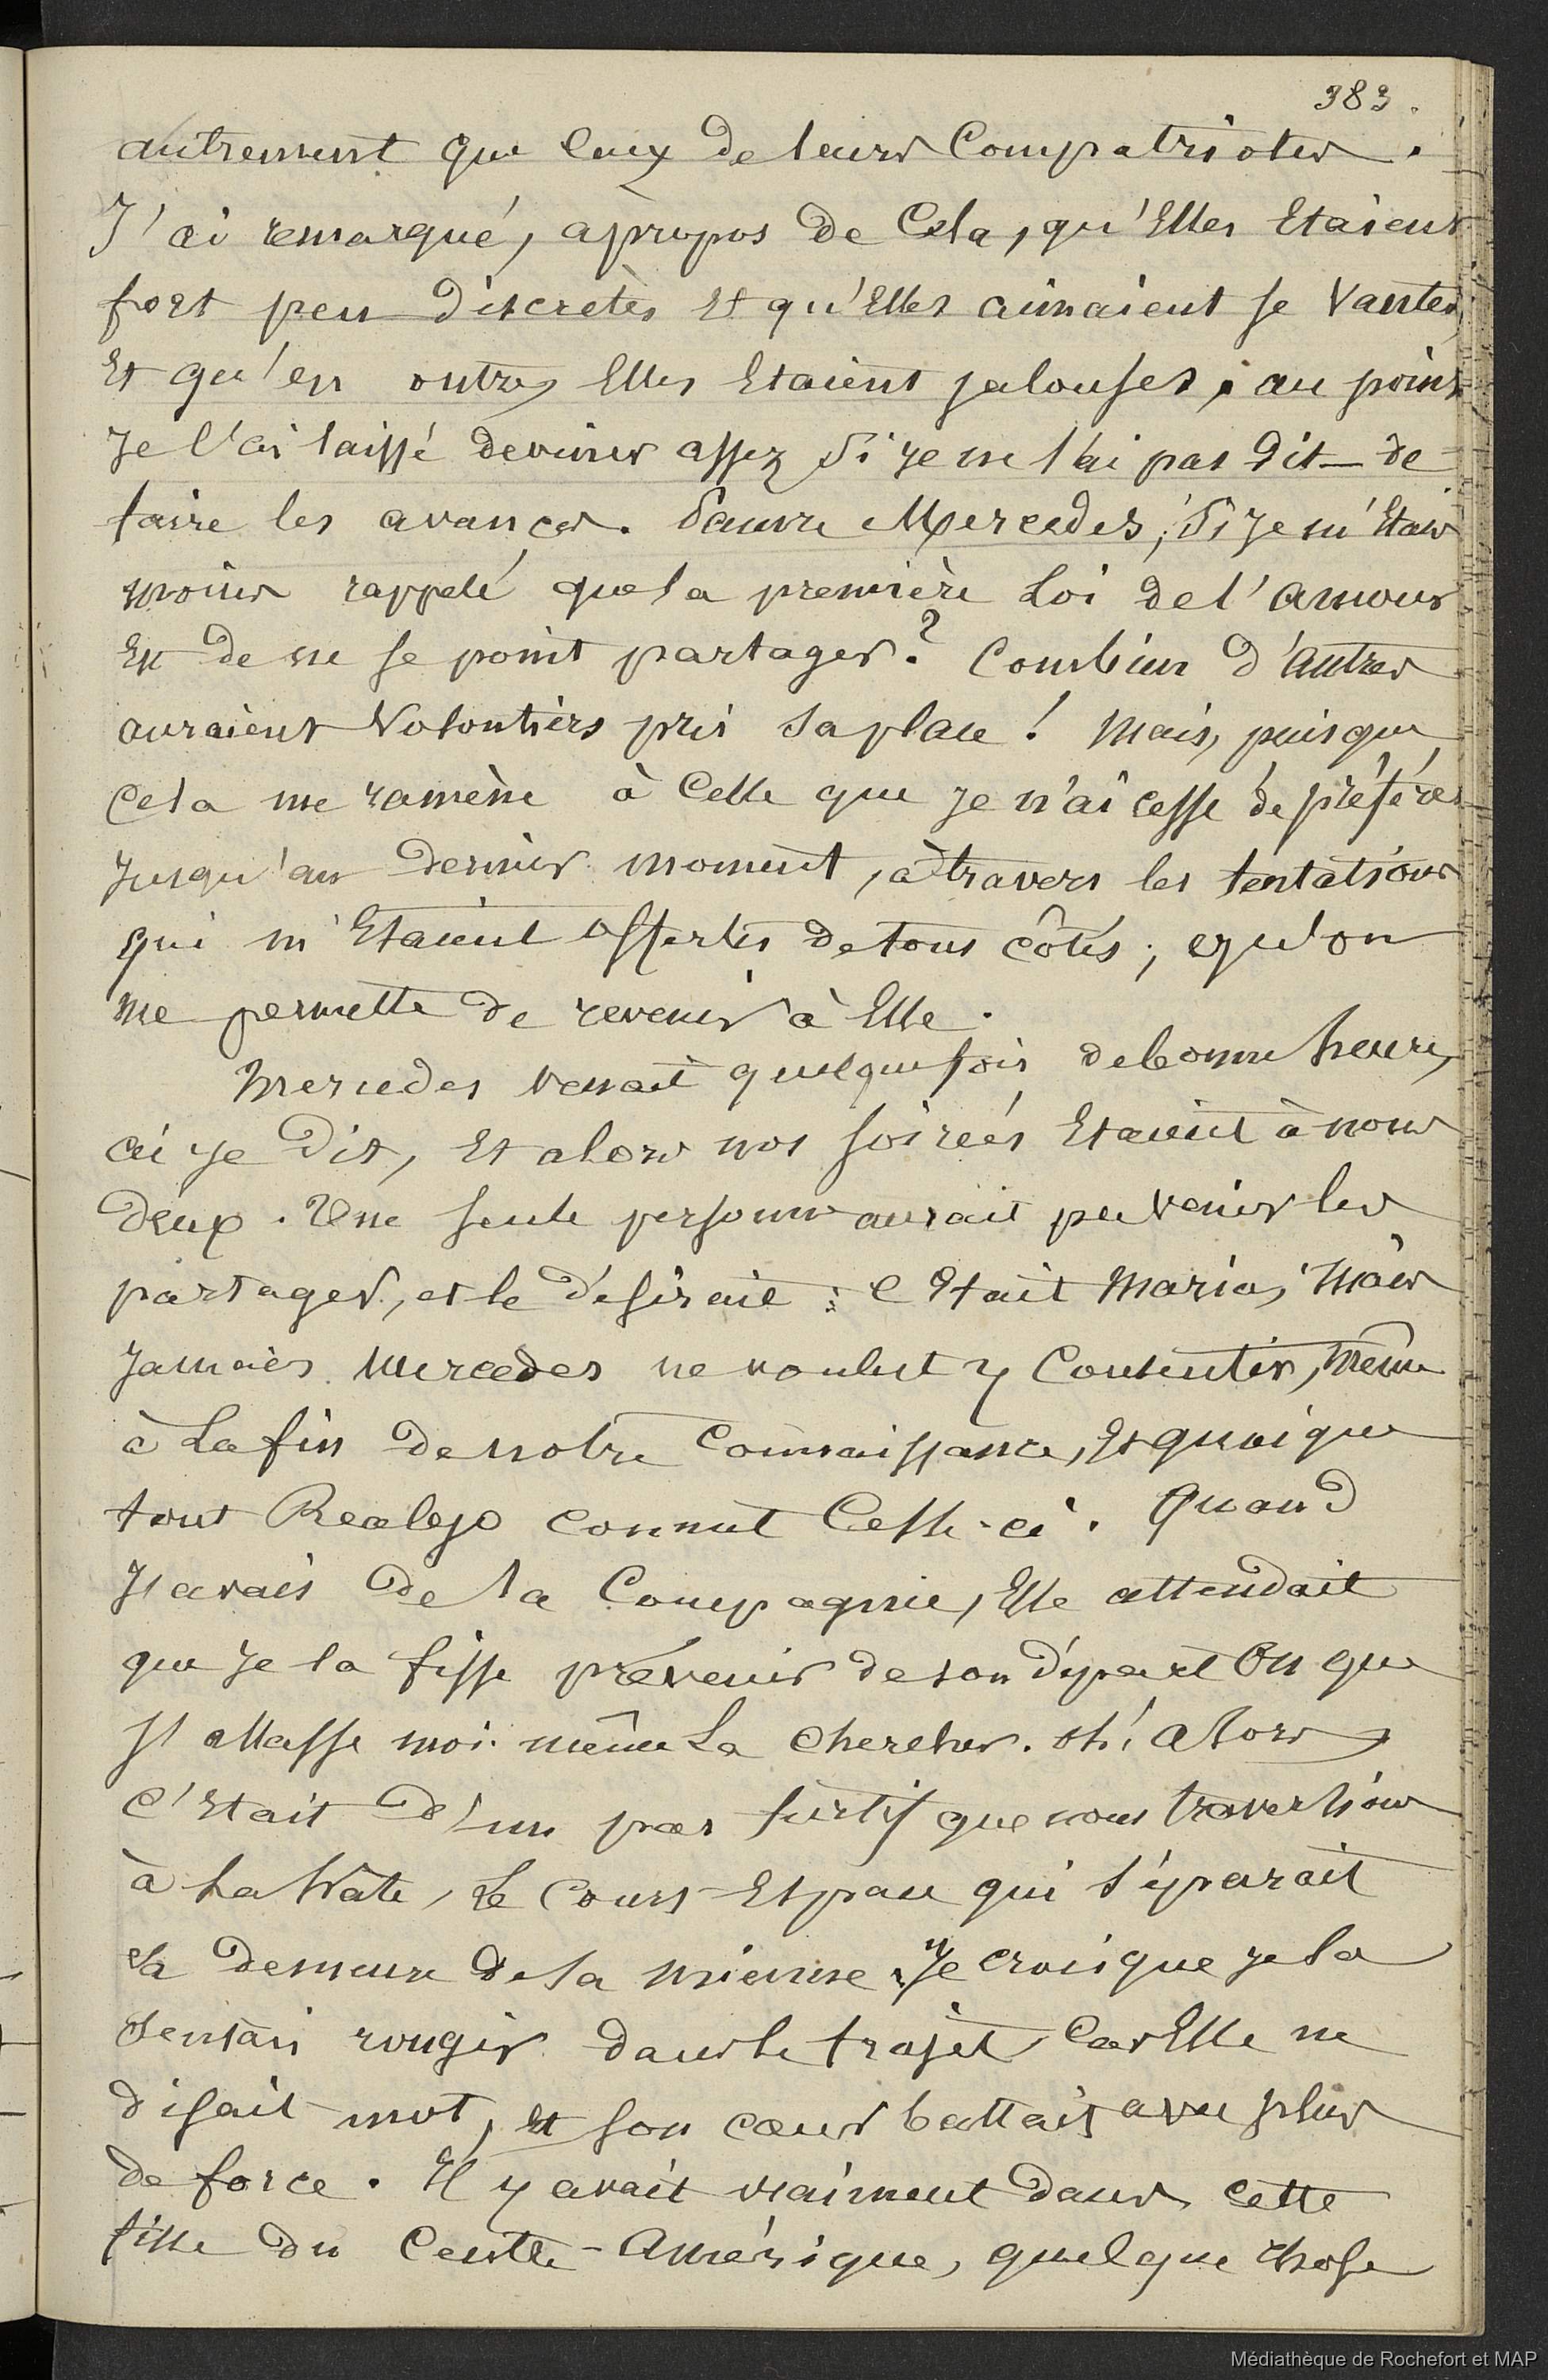 383.
autrement que ceux de leurs Compatriotes.
J'ai remarqué, àpropos de Cela, qu'Elles Etaient
fort peu Discretès Et qu'Elles aimaient se Vanter,
Et qu'en outre, Elles Etaient jalouses, au point
Je l'ai laissé deviner assez Si je ne l'ai pas Dit — de
faire les avances. Pauvre Mercedes, Si je m'Etais
moins rappelé que la première Loi de l'amour
Est de ne se point partager ? Combien d'autres
auraient Volontiers pris sa place ! Mais, puisque
Cela me ramène à Celle que je n'ai cessé de préférer
Jusqu'au Dernier moment, à travers les tentations
qui m'Etaient offertes de tous côtés ; qu'on
me permette de revenir à Elle.
Mercedes venait quelquefois de bonne heure,
ai je Dit, Et alors nos soirées Etaient à nous
Deux. Une seule personne aurait pu venir les
partager, et le désirait : C'Etait Maria, Mais
Jamais Mercedes ne voulut y Consentir, même
à La fin de notre Connaissance, Et quoique
tout Realejo connut Celle-ci. Quand
J'avais De la Compagnie, Elle attendait
que Je la fisse prévenir de son départ Ou que
J'allasse moi-même La chercher. Oh! alors,
C'Etait D'un pas furtif que nous traversions
à La hâte, Le Court Espace qui séparait
sa Demeure de la mienne. Je crois que je la
sentais rougir dans le trajet, Car Elle ne
disait mot, et son cœur battait avec plus
de force. Il y avait vraiment dans cette
fille du Centre-Amérique, quelque chose
Médiathèque de Rochefort et MAP